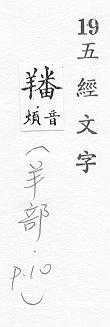 19五經文字
羳
音煩
(羊部.p.10)